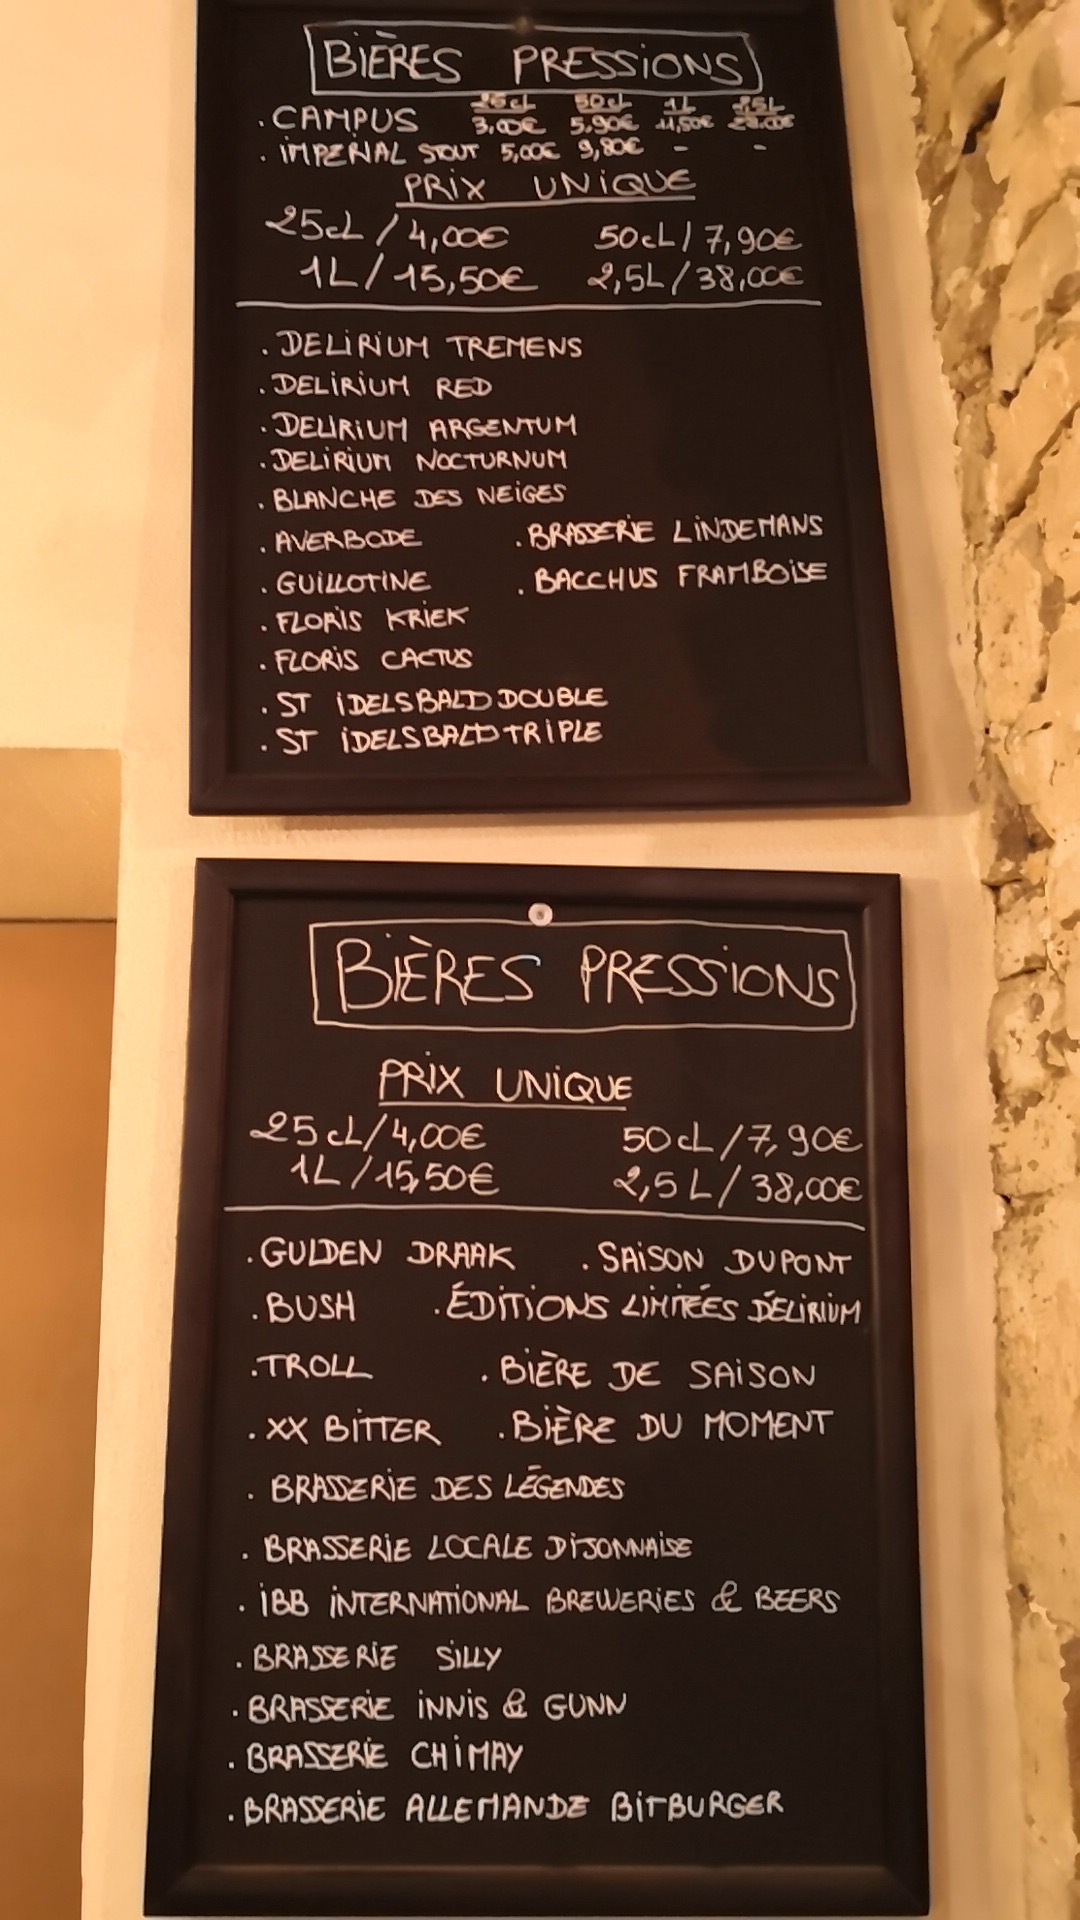 BIÈRES PRESSIONS
25cL 50cL 1L 2,5L
.CAMPUS 3,00€ 5,90€ 11,50€ 28,00€
.IMPERIAL STOUT 5,00€ 9,80€ - -
PRIX UNIQUE
25cL/4,00€ 50cL/7,90€
1L/15,50€ 2,5L/38,00€
.DELIRIUM TREMENS
.DELIRIUM RED
.DELIRIUM ARGENTUM
.DELIRIUM NOCTURNUM
.BLANCHE DES NEIGES
.AVERBODE .BRASSERIE LINDEMANS
.GUILLOTINE .BACCHUS FRAMBOISE
.FLORIS KRIEK
.FLORIS CACTUS
.ST IDELSBALD DOUBLE
.ST IDELSBALD TRIPLE
BIÈRES PRESSIONS
PRIX UNIQUE
25cL/4,00€ 50cL/7,90€
1L/15,50€ 2,5L/38,00€
.GULDEN DRAAK .SAISON DUPONT
.BUSH .ÉDITIONS LIMITÉES DÉLIRIUM
.TROLL .BIÈRE DE SAISON
.XX BITTER .BIÈRE DU MOMENT
.BRASSERIE DES LÉGENDES
.BRASSERIE LOCALE DIJONNAISE
.IBB INTERNATIONAL BREWERIES & BEERS
.BRASSERIE SILLY
.BRASSERIE INNIS & GUNN
.BRASSERIE CHIMAY
.BRASSERIE ALLEMANDE BITBURGER